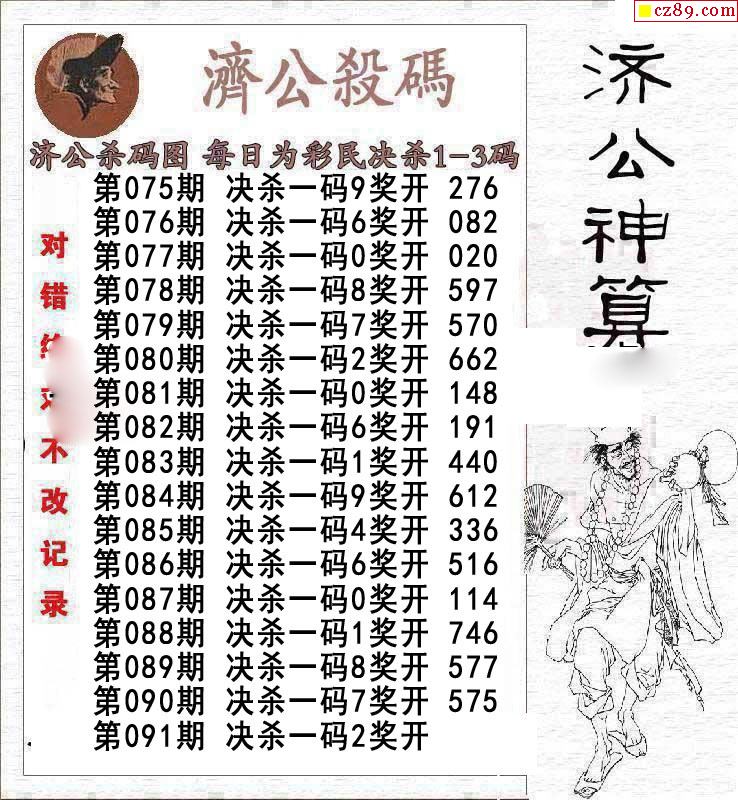 cz89.com
濟公殺碼
济公杀码图 每日为彩民决杀1-3码
第075期 决杀一码9奖开 276
第076期 决杀一码6奖开 082
第077期 决杀一码0奖开 020
第078期 决杀一码8奖开 597
第079期 决杀一码7奖开 570
第080期 决杀一码2奖开 662
第081期 决杀一码0奖开 148
第082期 决杀一码6奖开 191
第083期 决杀一码1奖开 440
第084期 决杀一码9奖开 612
第085期 决杀一码4奖开 336
第086期 决杀一码6奖开 516
第087期 决杀一码0奖开 114
第088期 决杀一码1奖开 746
第089期 决杀一码8奖开 577
第090期 决杀一码7奖开 575
第091期 决杀一码2奖开
对错不改记录
济公神算